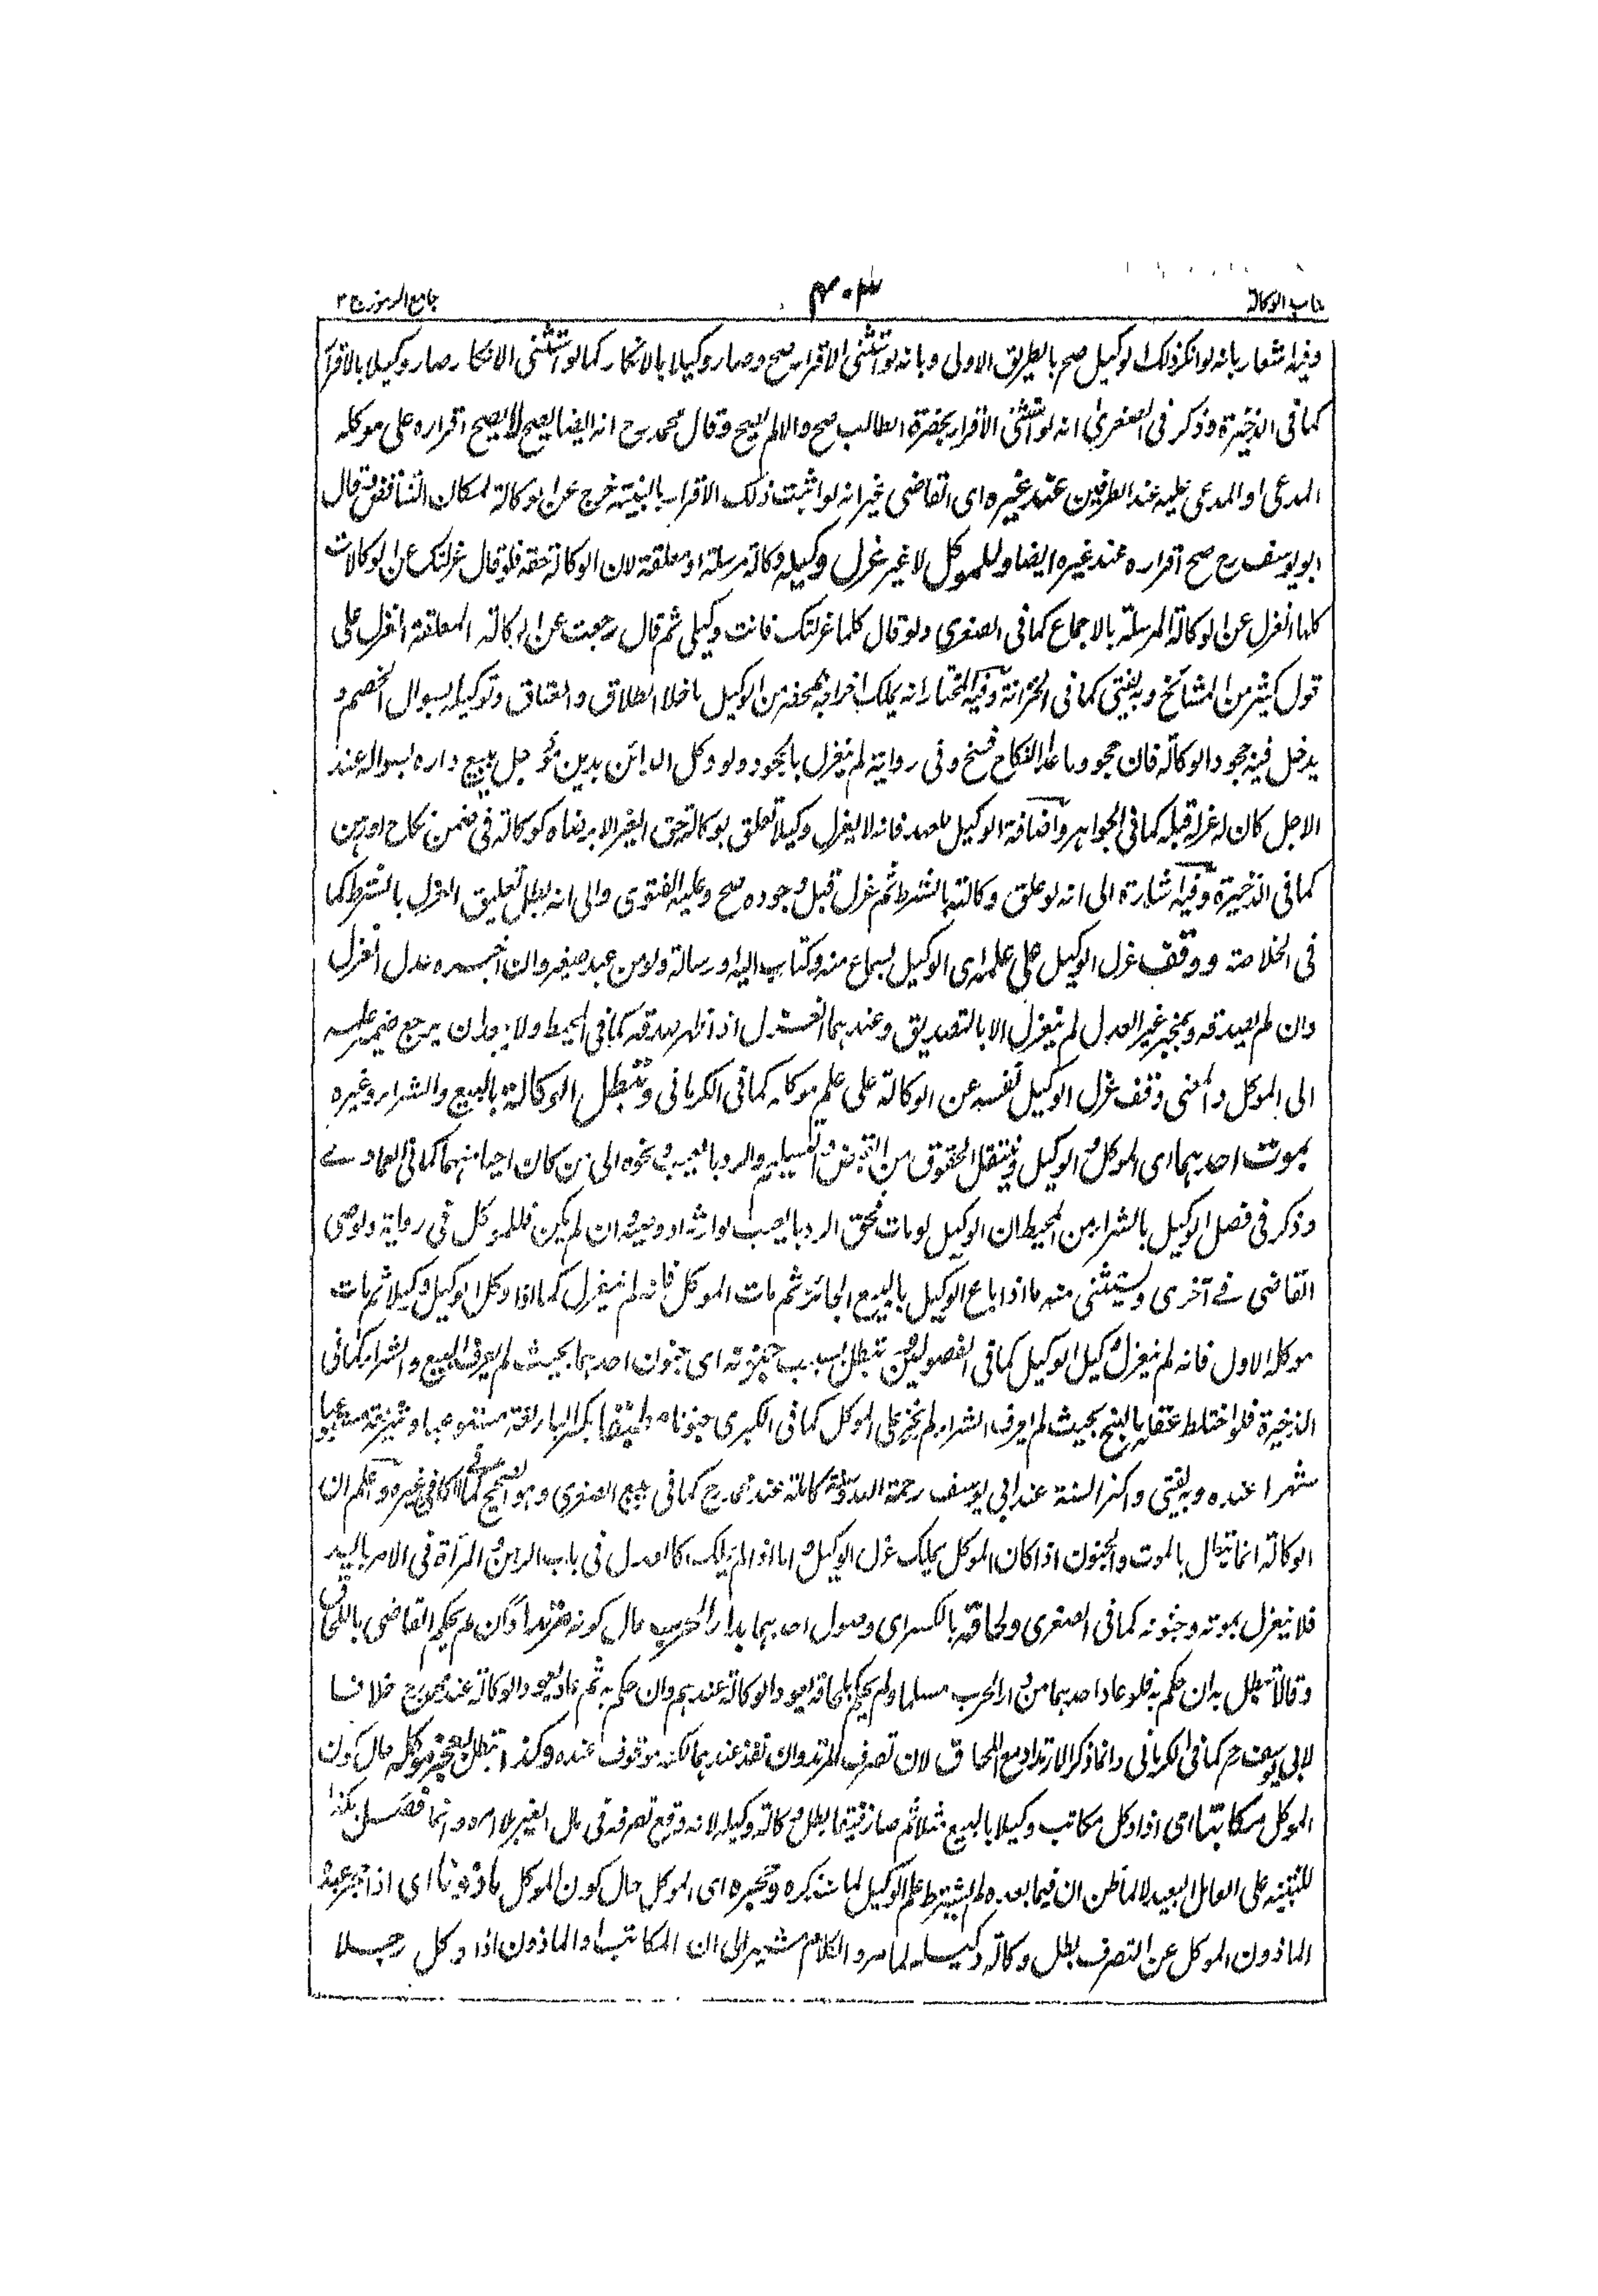 كتاب الوكالة
٤٠٣
جامع الرموز ج ٣
وفيه اشعار بانه لو انكر ذلك الوكيل صح بالطريق الاولى وبانه لو استثنى الاقرار صح وصار وكيلا بالانكار كما لو استثنى الانكار صار وكيلا بالاقرار
كما فى الذخيرة وذكر فى الصغرى انه لو استثنى الاقرار بحضرة الطالب صح والا لم يصح وقال محمد رح انه ايضا يصح لا يصح اقراره على موكله
المدعى او المدعى عليه عند الطرفين عند غيره اى القاضى غير انه لو اثبت ذلك الاقرار بالبينة خرج عن الوكالة لمكان التناقض وقال
ابو يوسف رح صح اقراره عند غيره ايضا وللموكل لا غير عزل وكيله وكالة مرسلة او معلقة لان الوكالة حقه فلو قال عزلتك عن الوكالات
كلها انعزل عن الوكالة المرسلة بالاجماع كما فى الصغرى ولو قال كلما عزلتك فانت وكيلى ثم قال رجعت عن الوكالة المعلقة انعزل على
قول كثير من المشائخ وبه يفتى كما فى الخزانة وفيه المختار انه يملك اخراجه بمحضر من الوكيل ما خلا الطلاق والعتاق وتوكيله بسوال الخصم و
يدخل فيه جحود الوكالة فان جحود ما عدا النكاح فسخ وفى رواية لم ينعزل بالجحود ولو وكل الدائن بدين مؤجل ببيع داره بسواله عند
الاجل كان له عزله قبله كما فى الجواهر واضافة الوكيل للعهد فانه لا يعزل وكيلا تعلق بوكالته حق الغير الا برضاه كوكالة فى ضمن نكاح او رهن
كما فى الذخيرة وفيه اشارة الى انه لو علق وكالته بالشرط ثم عزل قبل وجوده صح وعليه الفتوى والى انه يبطل تعليق العزل بالشرط كما
فى الخلاصة ووقف عزل الوكيل على علمه اى الوكيل بسماع منه وكتاب اليه او رسالة ولو من عبد صغير وان اخبره عدل انعزل
وان لم يصدقه وبخبر غير العدل لم ينعزل الا بالتصديق وعندهما انعزل اذا ظهر صدقه كما فى المحيط ولا يبعد ان يرجع ضمير علمه
الى الموكل والمعنى وقف عزل الوكيل نفسه عن الوكالة على علم موكله كما فى الكرمانى وتبطل الوكالة بالبيع والشراء وغيره
بموت احدهما اى الموكل والوكيل وينتقل الحقوق من القبض والتسليم والرد بالعيب ونحوه الى من كان حيا منهما كما فى العمادے
وذكر فى فصل الوكيل بالشراء من المحيط ان الوكيل لو مات فحق الرد بالعيب لوارثه او وصيه وان لم يكن فللموكل فى رواية ولوصى
القاضى فے آخرى ويستثنى منه ما اذا باع الوكيل بالبيع الجائز ثم مات الموكل فانه لم ينعزل كما اذا وكل الوكيل وكيلا ثم مات
موكله الاول فانه لم ينعزل وكيل الوكيل كما فى الفصولين وتبطل بسبب جنونه اى جنون احدهما بحيث لم يعرف البيع والشراء كما فى
الذخيرة فلو اختلط عقله بالبنج بحيث لم يعرف الشراء لم يجز على الموكل كما فى الكبرى جنونا مطبقا بكسر الباء لغة
شهرا عنده وبه يفتى واكثر السنة عند ابى يوسف رحمه الله وسنة كاملة عند محمد رح كما فى بيع الصغرى وهو الصحيح كما فى الكافى وغيره واعلم ان
الوكالة انما تبطل بالموت والجنون اذا كان الموكل يملك عزل الوكيل واما اذا لم يملك كالعدل فى باب الرهن والمرأة فى الامر باليد
فلا ينعزل بموته وجنونه كما فى الصغرى ولحاقه بالكسر اى وصول احدهما بدار الحرب حال كونه مرتدا وان لم يحكم القاضى باللحاق
وقالا تبطل به ان حكم به فلو عاد احدهما من دار الحرب مسلما ولم يحكم بلحاقه يعود الوكالة عندهم وان حكم به ثم عاد يعود الوكالة عند محمد رح خلافا
لابى يوسف رح كما فى الكرمانى وانما ذكر الارتداد مع اللحاق لان تصرف المرتد وان نفذ عندهما لكنه موقوف عنده وكذا تبطل بعجز موكله حال كون
الموكل مكاتبا اى اذا وكل مكاتب وكيلا بالبيع مثلا ثم صار قنا بطل وكالة وكيله لانه وقع تصرفه فى مال الغير بلا امره وانما فصل بكذا
للتنبيه على العامل البعيد لا لما ظن ان فيما بعده لم يشترط علم الوكيل لما سنذكره وحجره اى الموكل حال كون الموكل ماذونا اى اذا حجر عبد
الماذون الموكل عن التصرف بطل وكالة وكيله لما مر والكلام مشير الى ان المكاتب او الماذون اذا وكل رجلا